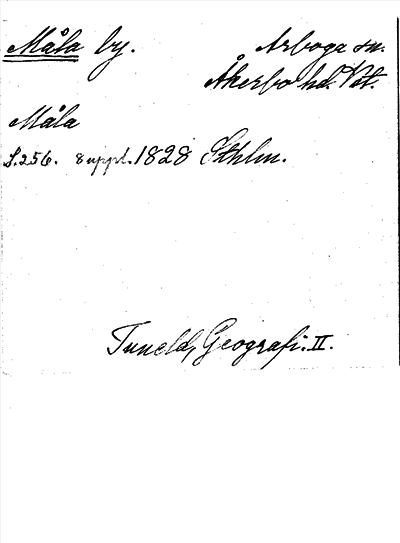 Måla by. Arboga sn.
Åkerbo hd. Vstm.
Måla
S.256. 8 uppl. 1828 Sthlm.
Tuneld, Geografi. II.